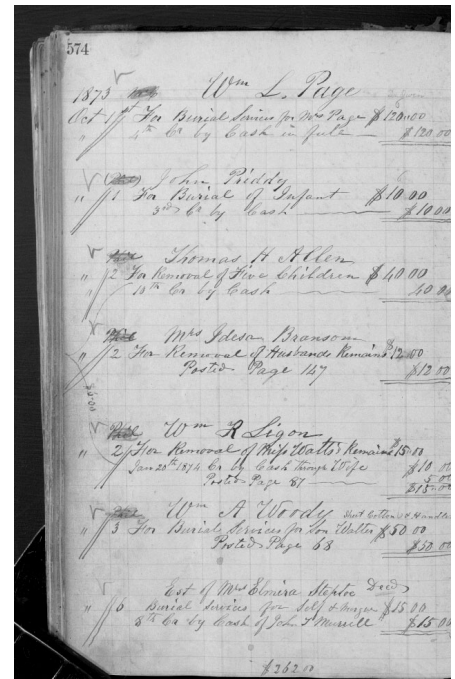 574
1873 Wm L. Page
Oct 1st For Burial Servises for Mrs Page $120.00
" 4th Cr by Cash in full $120.00
John Priddy
" 1 For Burial of Infant $10.00
3rd Cr by Cash $10.00
Thomas H Allen
" 2 For Removal of Five Children $40.00
" 10th Cr by Cash 40.00
Mrs Idesa Branson
" 2 For Removal of Husbands Remains $12.00
Posted Page 147 $12.00
$6.00
Wm R Ligon
2 For Removal of Miss Watts Remains $15.00
Jan 20th 1874 Cr by Cash through Wife $10.00
Posted Page 81 5.00
$15.00
Wm A Woody
" 3 For Burial Servises for Son Walter $50.00
Posted Page 68 $50.00
Est of Mrs Elmira Steptoe Decd
" 6 Burial Servises for Self $15.00
8th Cr by Cash of John T Murrell $15.00
$262.00